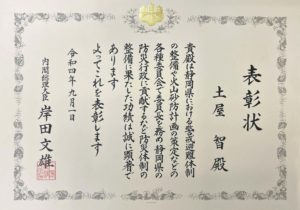 表彰状
土屋 智 殿
貴殿は静岡県における警戒避難体制
の整備や火山砂防計画の策定などの
各種委員会で委員長を務め静岡県の
防災行政に貢献するなど防災体制の
整備に果たした功績は誠に顕著で
あります
よってこれを表彰します
令和四年九月一日
内閣総理大臣 岸田文雄